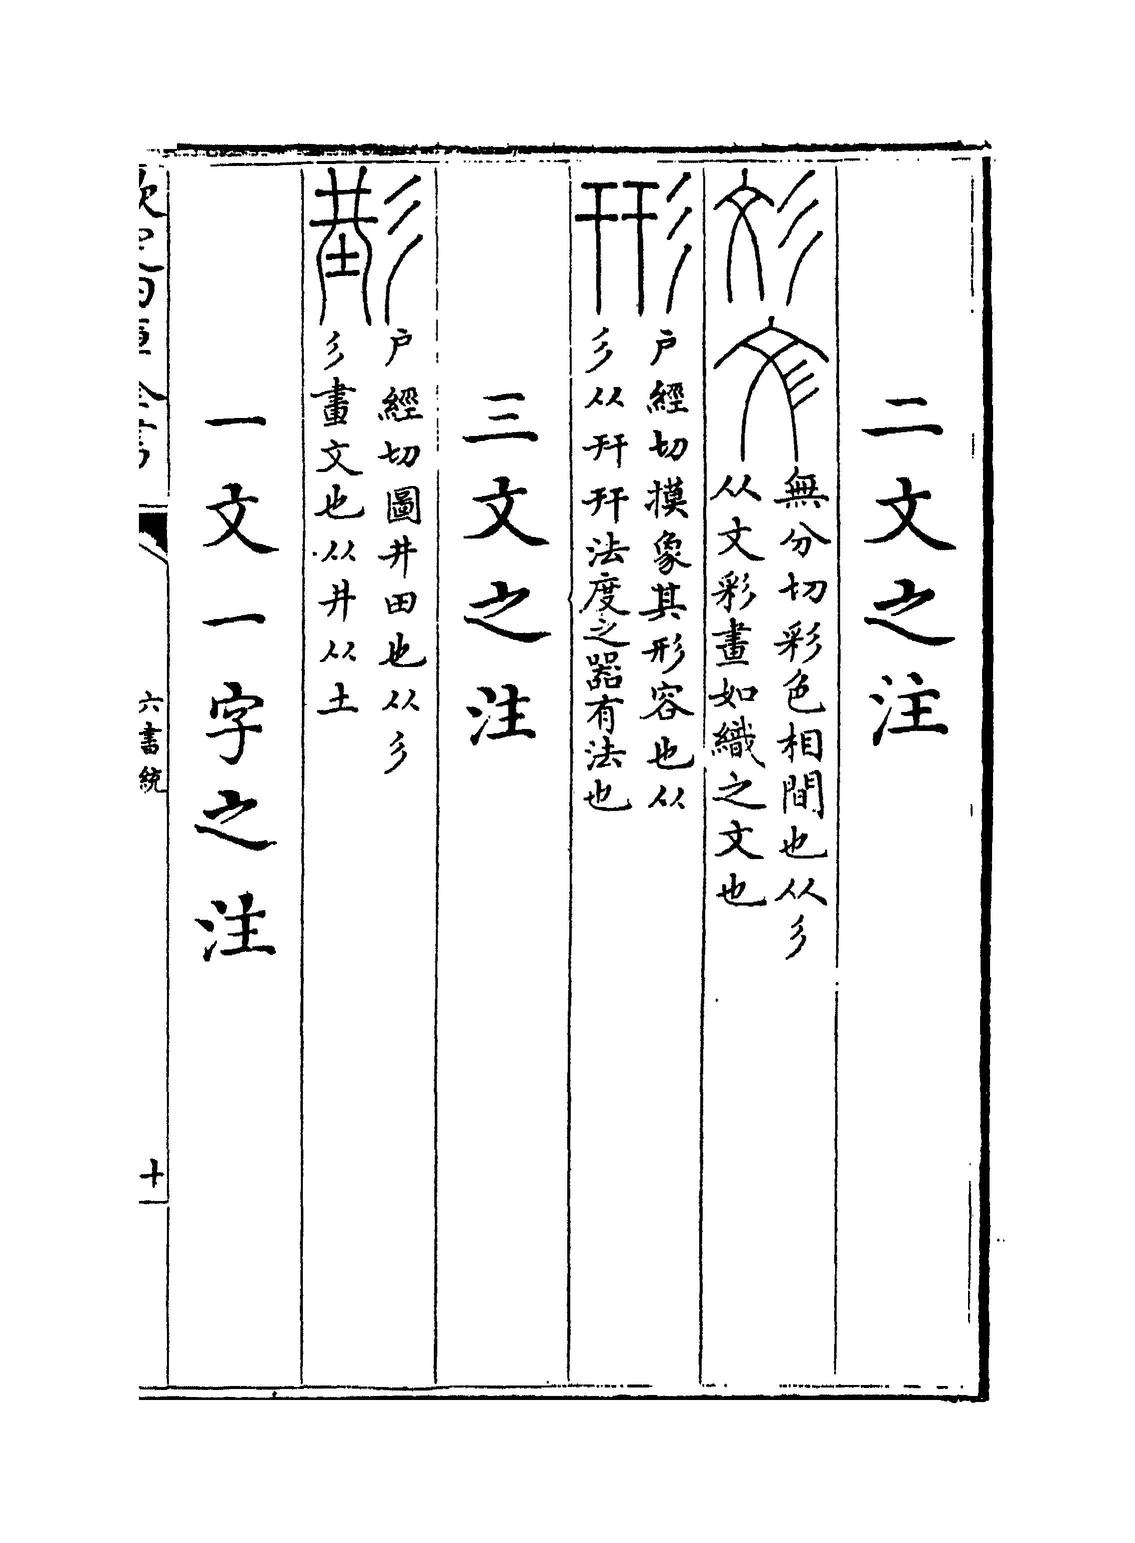 二文之注
彣
無分切彩色相間也从彡
从文彩畫如織之文也
形
户經切摸象其形容也从
彡从幵幵法度之器有法也
三文之注
户經切圖井田也从彡
彡畫文也从井从土
一文一字之注
六書統
十